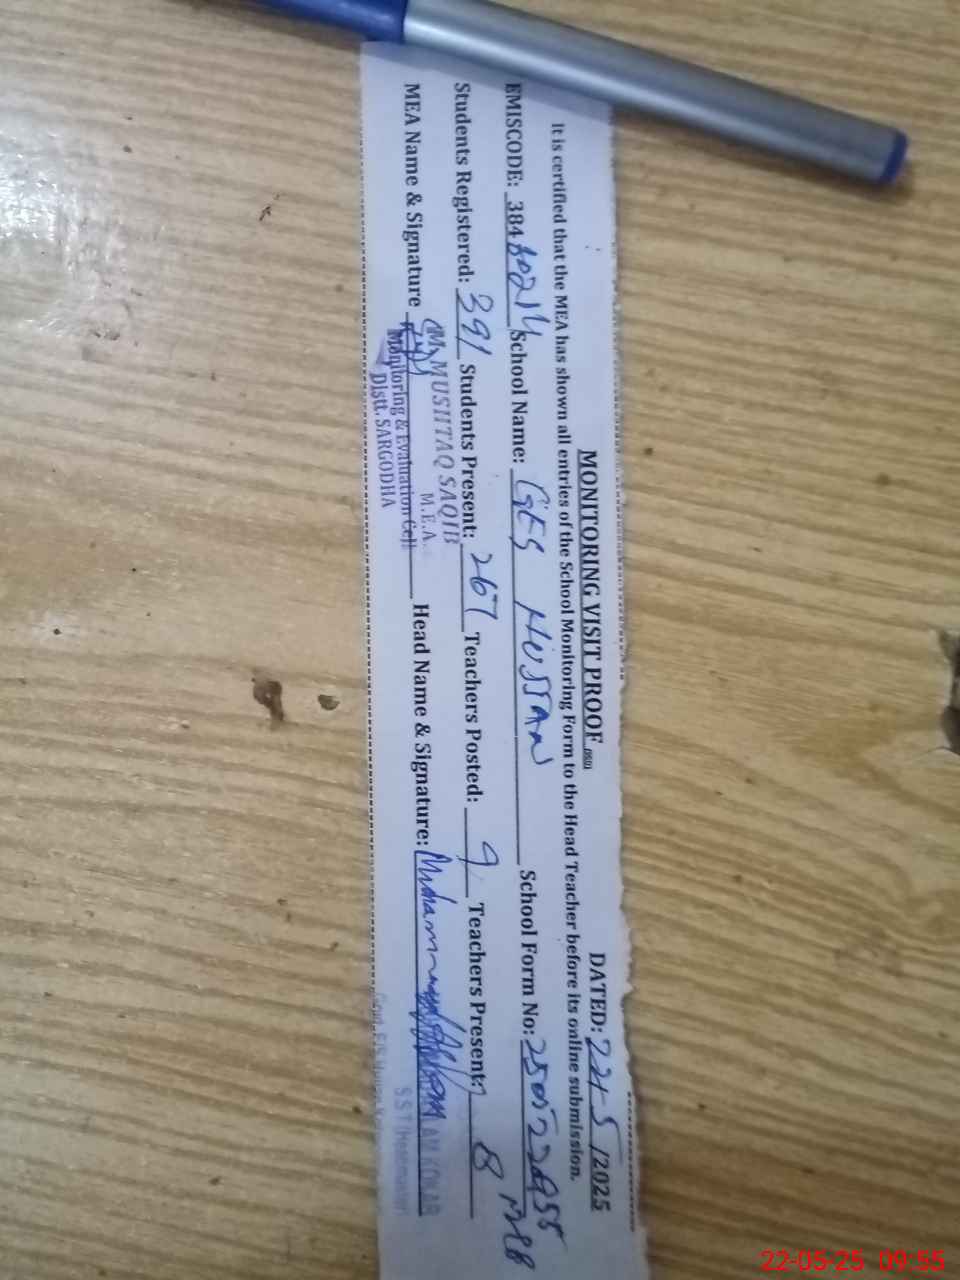 MONITORING VISIT PROOF (PSED) DATED: 22/5/2025
It is certified that the MEA has shown all entries of the School Monitoring Form to the Head Teacher before its online submission.
EMISCODE: 384 School Name: GES HUSSAN School Form No:
Students Registered: 391 Students Present: 267 Teachers Posted: 9 Teachers Present: 8
MEA Name & Signature MUSHTAQ SAQIB Head Name & Signature: Muhammad
M.E.A.
Monitoring & Evaluation Cell
Distt. SARGODHA
SST Headmaster
22-05-25 09:55